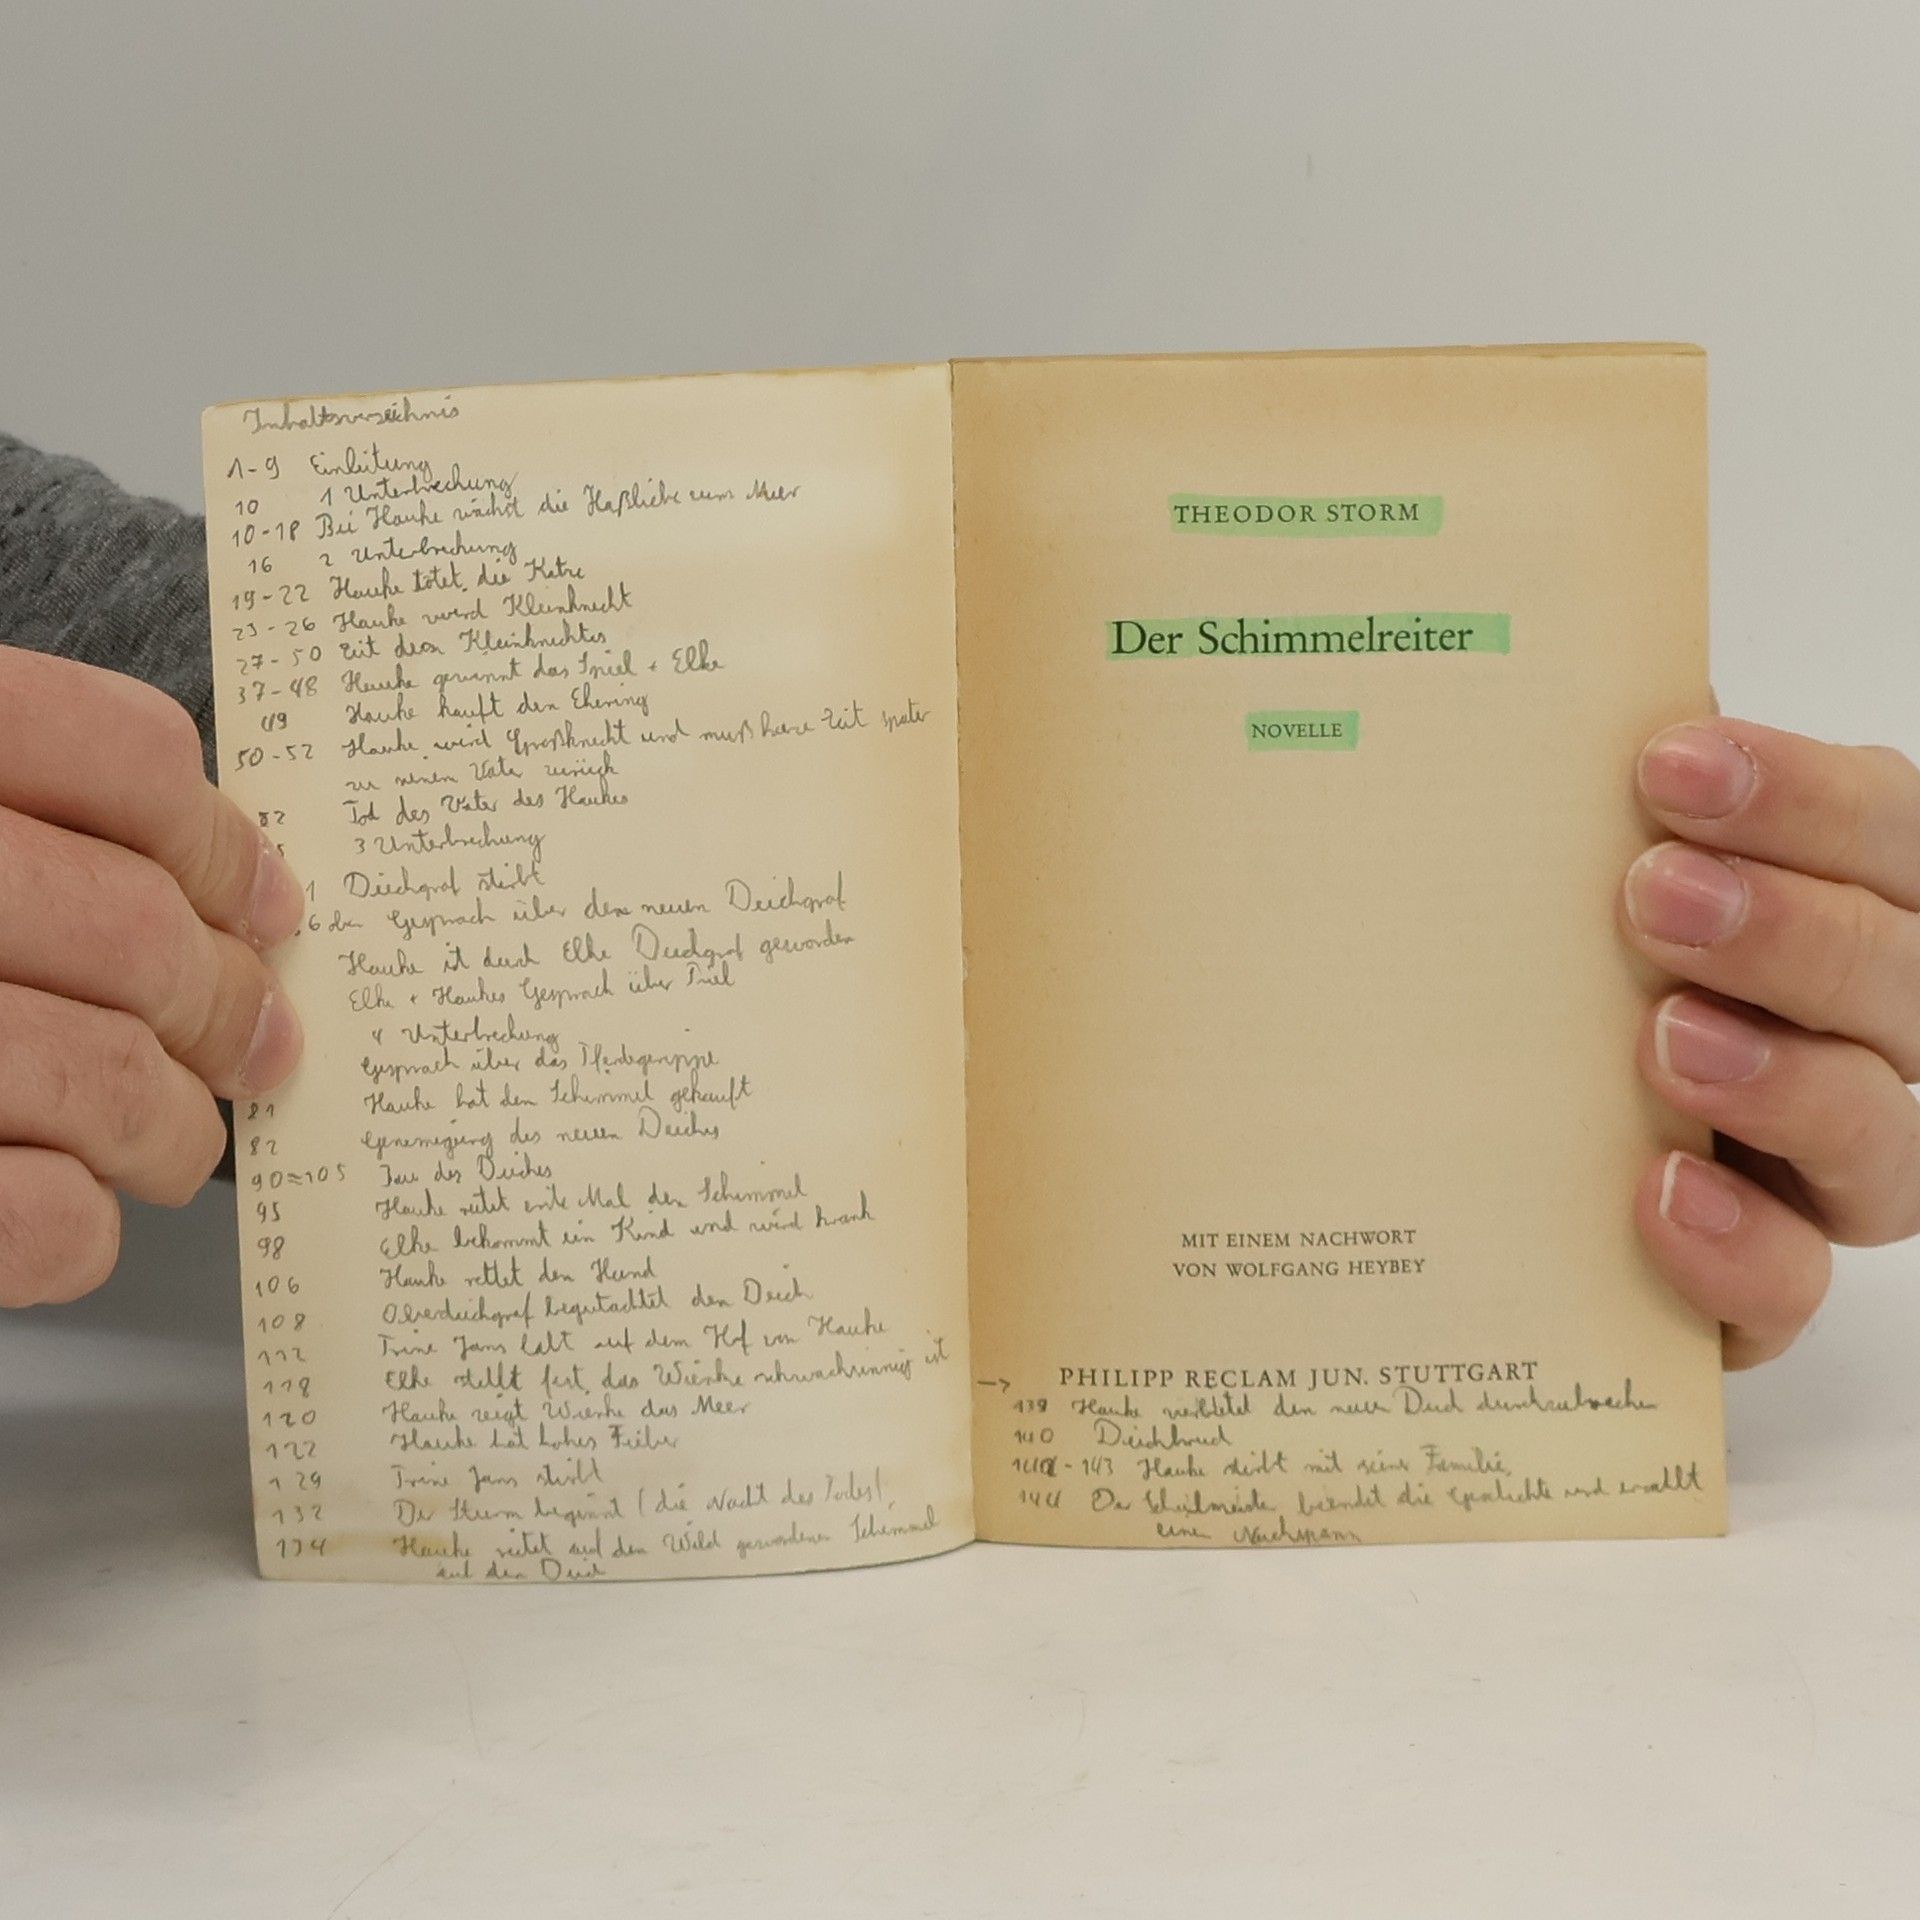 Inhaltsverzeichnis
1-9 Einleitung
10 1 Unterbrechung
10-18 Bei Hauke wächst die Haßliebe zum Meer
16 2 Unterbrechung
19-22 Hauke tötet die Katze
23-26 Hauke wird Kleinknecht
27-50 Zeit des Kleinknechtes
37-48 Hauke gewinnt das Spiel + Elke
49 Hauke kauft den Ehering
50-52 Hauke wird Großknecht und muß kurze Zeit später
zu seinem Vater zurück
Tod des Vater des Haukes
3 Unterbrechung
Deichgraf stirbt
Gespräch über den neuen Deichgraf
Hauke ist durch Elke Deichgraf geworden
Elke + Haukes Gespräch über
4 Unterbrechung
Gespräch über das Pferdegerippe
81 Hauke hat den Schimmel gekauft
82 des neuen Deiches
90 105 des Deiches
95 Hauke reitet erste Mal den Schimmel
98 Elke bekommt ein Kind und wird krank
106 Hauke rettet den Hund
108 Oberdeichgraf begutachtet den Deich
112 Trine Jans auf dem Hof von Hauke
118 Elke stellt fest, das Wienke schwachsinnig ist
120 Hauke zeigt Wienke das Meer
122 Hauke hat hohes Fieber
129 Trine Jans stirbt
132 Der Sturm beginnt (die Nacht des Todes)
134 Hauke reitet auf den Wild gewordenen Schimmel
auf den Deich
THEODOR STORM
Der Schimmelreiter
NOVELLE
MIT EINEM NACHWORT
VON WOLFGANG HEYBEY
PHILIPP RECLAM JUN. STUTTGART
→
139 Hauke verbietet den neuen Deich
140 Deichbruch
143 Hauke stirbt mit seiner Familie,
144 Der Schulmeister beendet die Geschichte und erzählt
einen